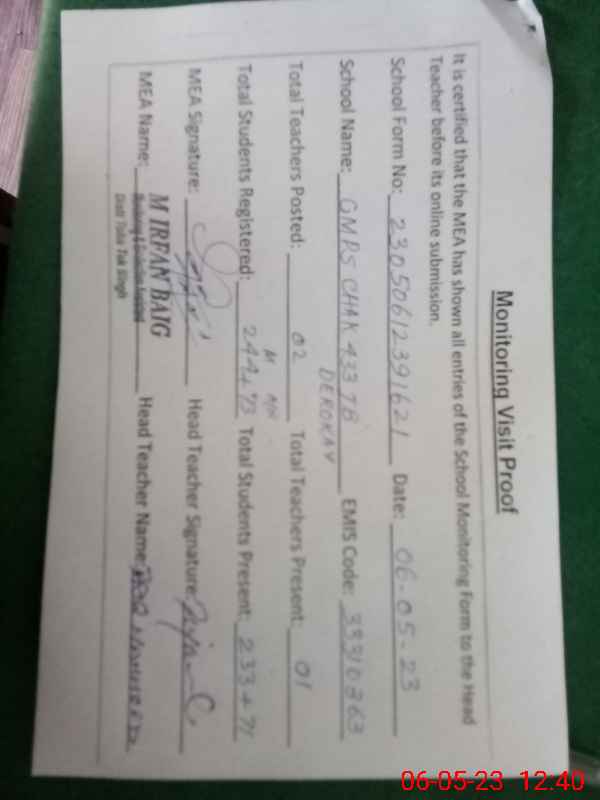 Monitoring Visit Proof
It is certified that the MEA has shown all entries of the School Monitoring Form to the Head
Teacher before its online submission.
School Form No: 230506123 91621 Date: 06-05-23
School Name: GMPS CHAK 433 JB EMIS Code: 33310363
DEROKAY
Total Teachers Posted: 02 Total Teachers Present: 01
Total Students Registered: 244+73 Total Students Present: 233+71
MEA Signature: Head Teacher Signature:
MEA Name: M IRFAN BAIG Head Teacher Name:
Distt Toba Tek Singh
06-05-23 12:40